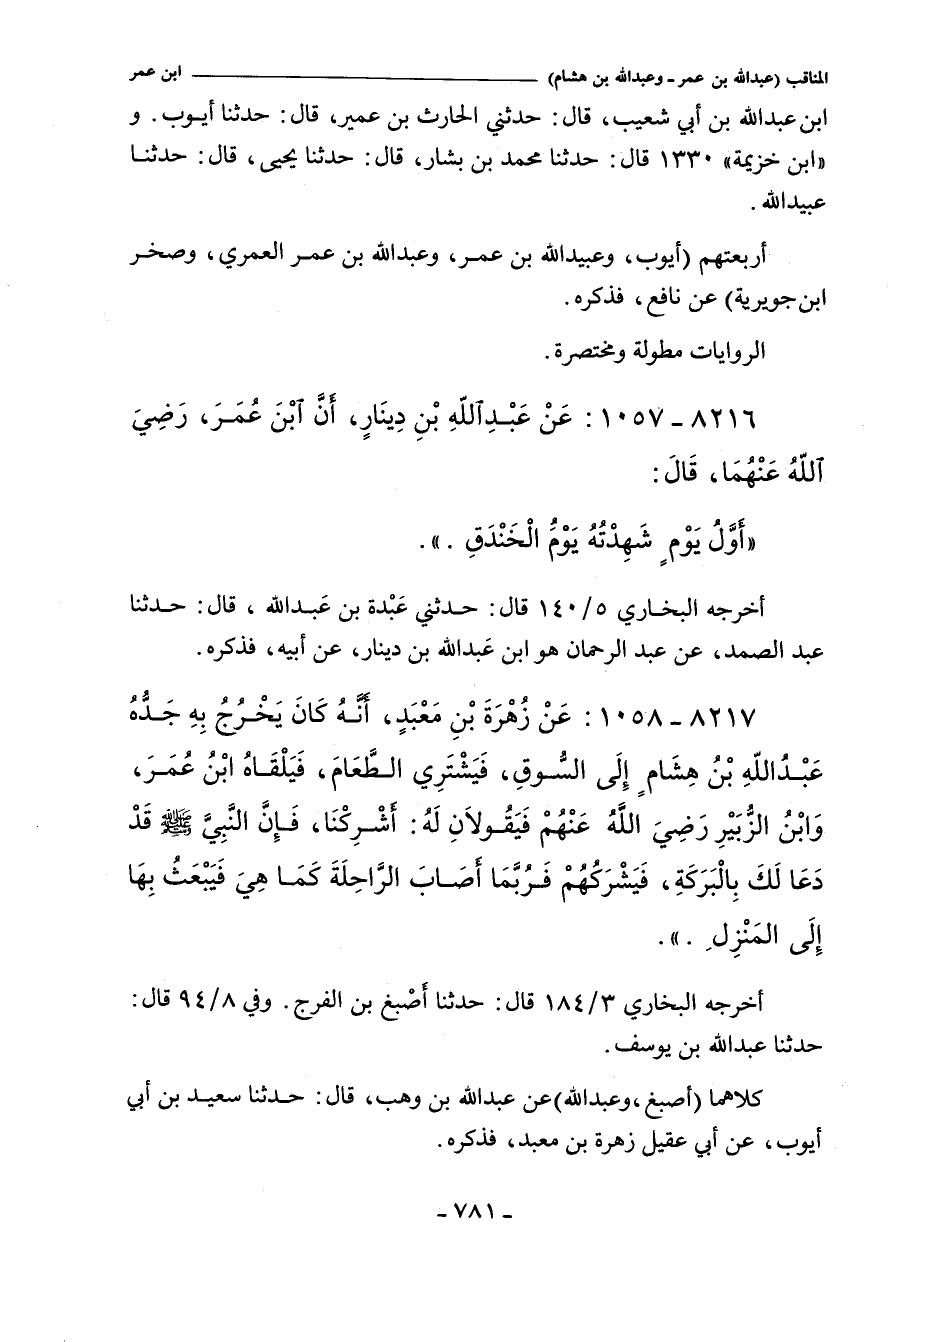 المناقب (عبدالله بن عمر - وعبدالله بن هشام) ابن عمر
ابن عبدالله بن أبي شعيب، قال: حدثني الحارث بن عمير، قال: حدثنا أيوب. و
«ابن خزيمة» ١٣٣٠ قال: حدثنا محمد بن بشار، قال: حدثنا يحيى، قال: حدثنا
عبيدالله.
أربعتهم (أيوب، وعبيدالله بن عمر، وعبدالله بن عمر العمري، وصخر
ابن جويرية) عن نافع، فذكره.
الروايات مطولة ومختصرة.
٨٢١٦ - ١٠٥٧: عَنْ عَبْدِٱللّهِ بْنِ دِينَارٍ، أَنَّ ٱبْنَ عُمَرَ، رَضِيَ
ٱللّهُ عَنْهُمَا، قَالَ:
«أَوَّلُ يَوْمٍ شَهِدْتُهُ يَوْمُ الْخَنْدَقِ .».
أخرجه البخاري ١٤٠/٥ قال: حدثني عَبْدة بن عَبدالله، قال: حدثنا
عبد الصمد، عن عبد الرحمان هو ابن عَبدالله بن دينار، عن أبيه، فذكره.
٨٢١٧ - ١٠٥٨: عَنْ زُهْرَةَ بْنِ مَعْبَدٍ، أَنَّهُ كَانَ يَخْرُجُ بِهِ جَدُّهُ
عَبْدُاللّهِ بْنُ هِشَامٍ إِلَى السُّوقِ، فَيَشْتَرِي الطَّعَامَ، فَيَلْقَاهُ ابْنُ عُمَرَ،
وَابْنُ الزُّبَيْرِ رَضِيَ اللَّهُ عَنْهُمْ فَيَقُولاَنِ لَهُ: أَشْرِكْنَا، فَإِنَّ النَّبِيَّ ﷺ قَدْ
دَعَا لَكَ بِالْبَرَكَةِ، فَيَشْرَكُهُمْ فَرُبَّمَا أَصَابَ الرَّاحِلَةَ كَمَا هِيَ فَيَبْعَثُ بِهَا
إِلَى المَنْزِلِ .».
أخرجه البخاري ١٨٤/٣ قال: حدثنا أَصْبغ بن الفرج. وفي ٩٤/٨ قال:
حدثنا عبدالله بن يوسف.
كلاهما (أصبغ، وعبدالله) عن عبدالله بن وهب، قال: حدثنا سعيد بن أبي
أيوب، عن أبي عقيل زهرة بن معبد، فذكره.
- ٧٨١ -